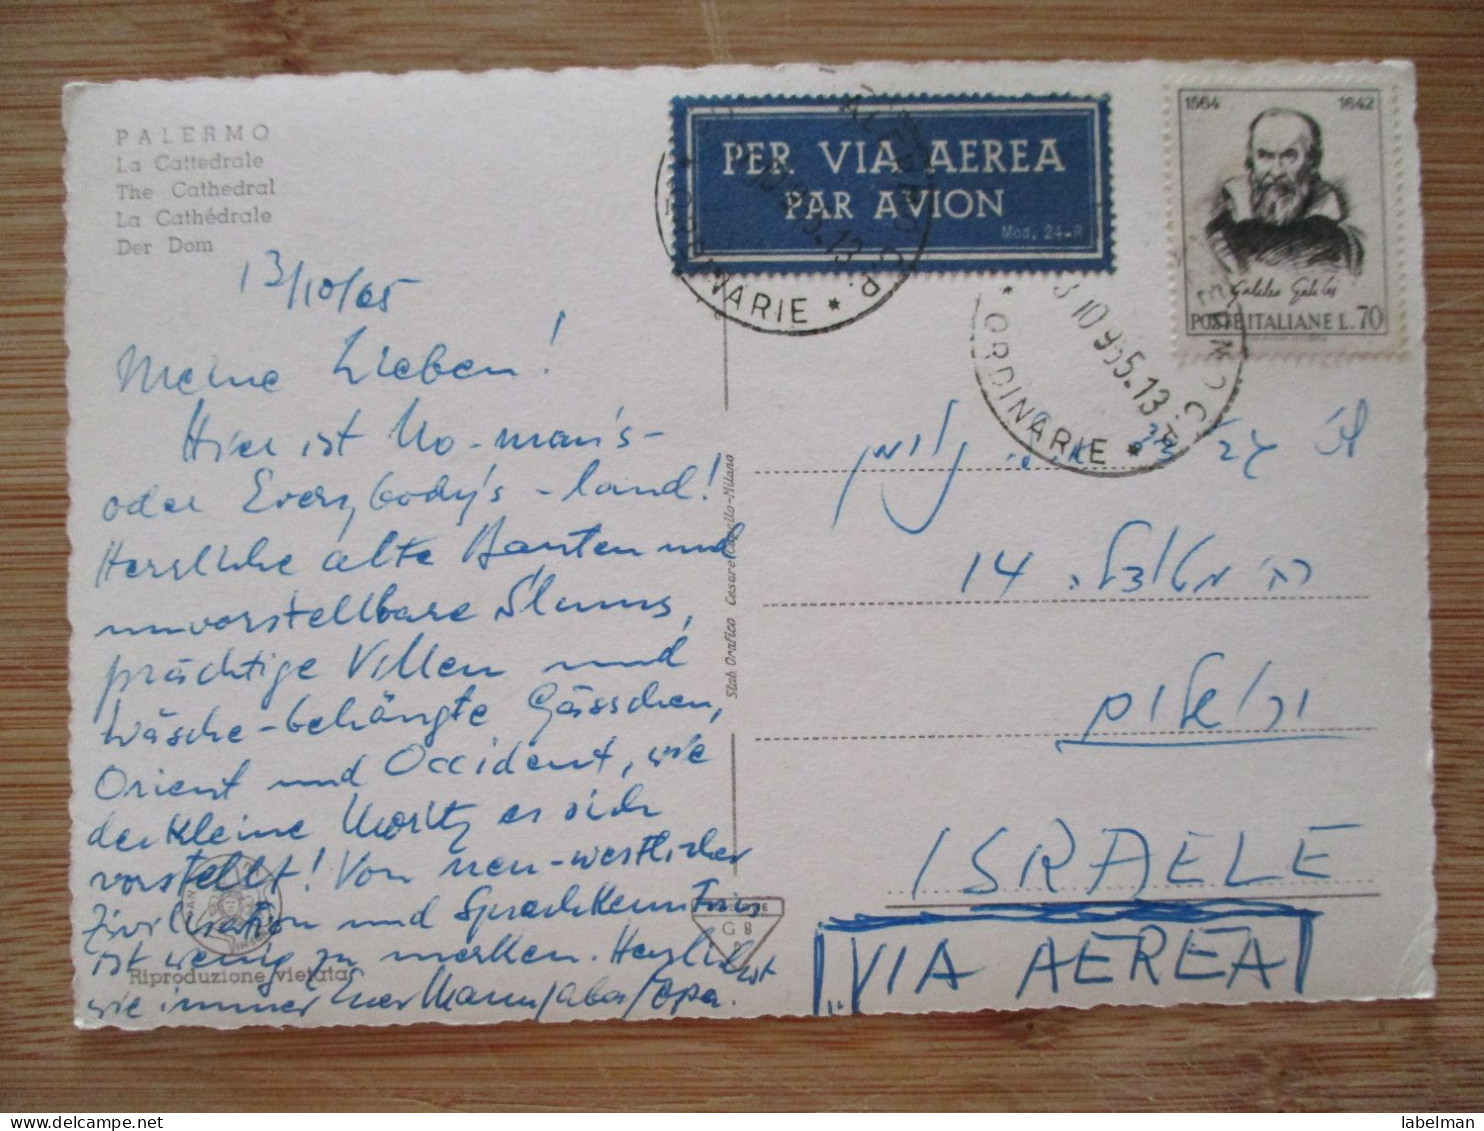 PALERMO
La Cattedrale
The Cathedral
La Cathédrale
Der Dom
13/10/65
Meine Lieben!
Hier ist No-man's-
oder Everybody's-land!
Herrliche alte Bauten und
unvorstellbare Slums,
prächtige Villen und
wäsche-behängte Gässchen,
Orient und Occident, wie
der kleine Moritz es sich
vorstellt! Von neu-westlicher
Zivilisation und Sprachkenntnis
ist wenig zu merken. Herzlichst
wie immer Euer Mann/aba/Opa.
Riproduzione vietata
Stab. Grafico Cesare Capello-Milano
G B
PER VIA AEREA
PAR AVION
Mod. 24-R
ORDINARIE *
13 10 965.13
ORDINARIE *
1564 1642
Galileo Galilei
POSTE ITALIANE L. 70
נוימן
14
ירושלים
ISRAELE
VIA AEREA
www.delcampe.net
labelman